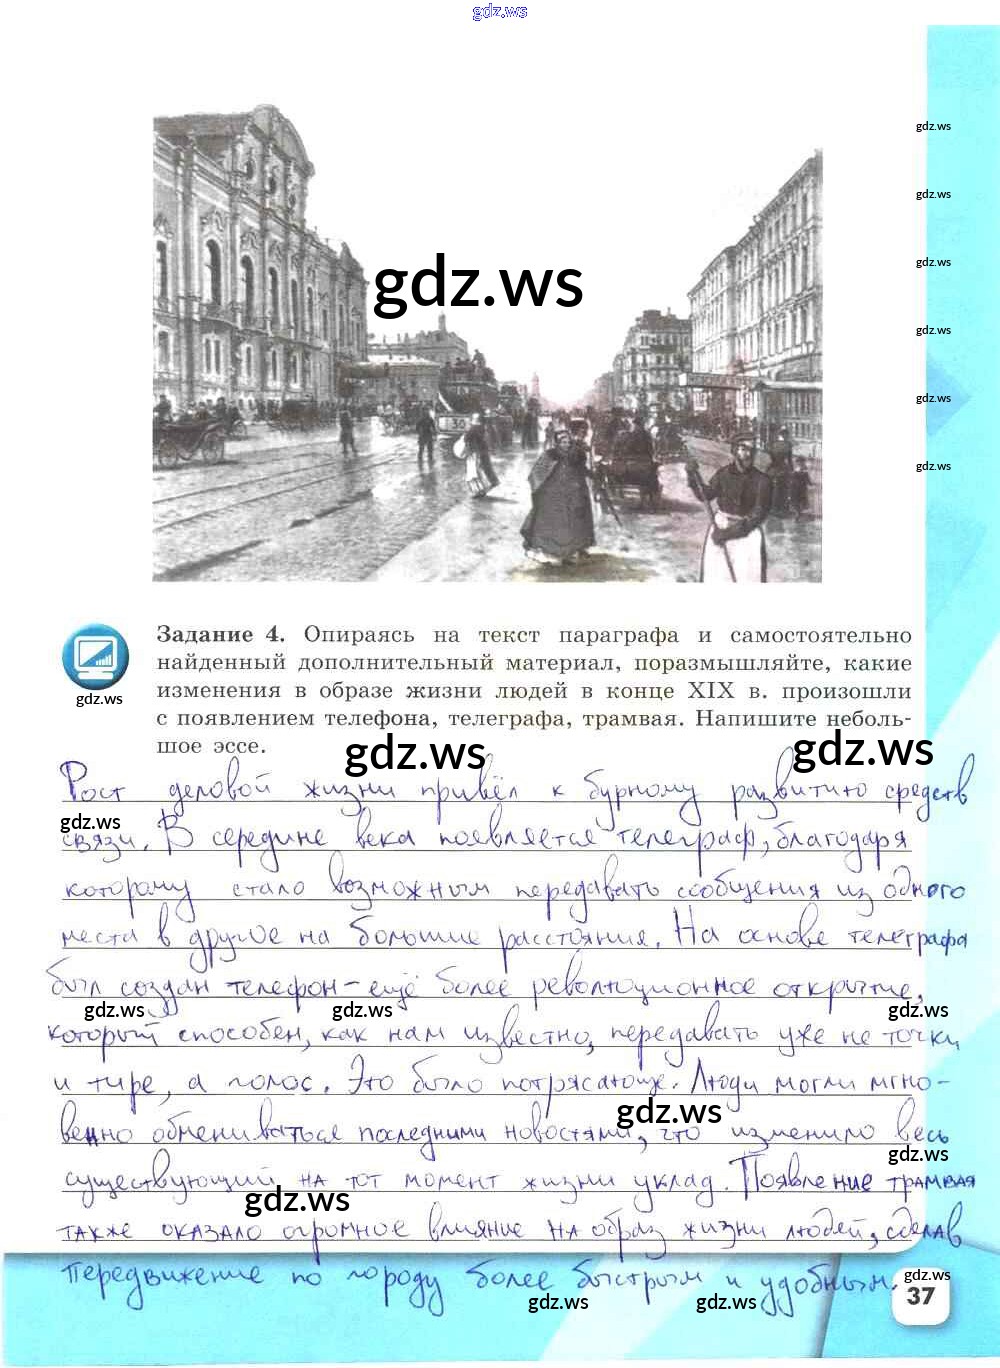 gdz.ws
gdz.ws
gdz.ws
gdz.ws
gdz.ws
gdz.ws
30
gdz.ws
gdz.ws
Задание 4. Опираясь на текст параграфа и самостоятельно
найденный дополнительный материал, поразмышляйте, какие
изменения в образе жизни людей в конце XIX в. произошли
gdz.ws
с появлением телефона, телеграфа, трамвая. Напишите неболь-
шое эссе.
gdz.ws
gdz.ws
Рост деловой жизни привёл к бурному развитию средств
gdz.ws
связи. В середине века появляется телеграф, благодаря
которому стало возможным передавать сообщения из одного
места в другое на большие расстояния. На основе телеграфа
был создан телефон - ещё более революционное открытие,
gdz.ws
gdz.ws
gdz.ws
который способен, как нам известно, передавать уже не точки
и тире, а голос. Это было потрясающе. Люди могли мгно-
gdz.ws
венно обмениваться последними новостями, что изменило весь
gdz.ws
существующий на тот момент жизни уклад. Появление трамвая
gdz.ws
также оказало огромное влияние на образ жизни людей, сделав
передвижение по городу более быстрым и удобным.
gdz.ws
37
gdz.ws
gdz.ws